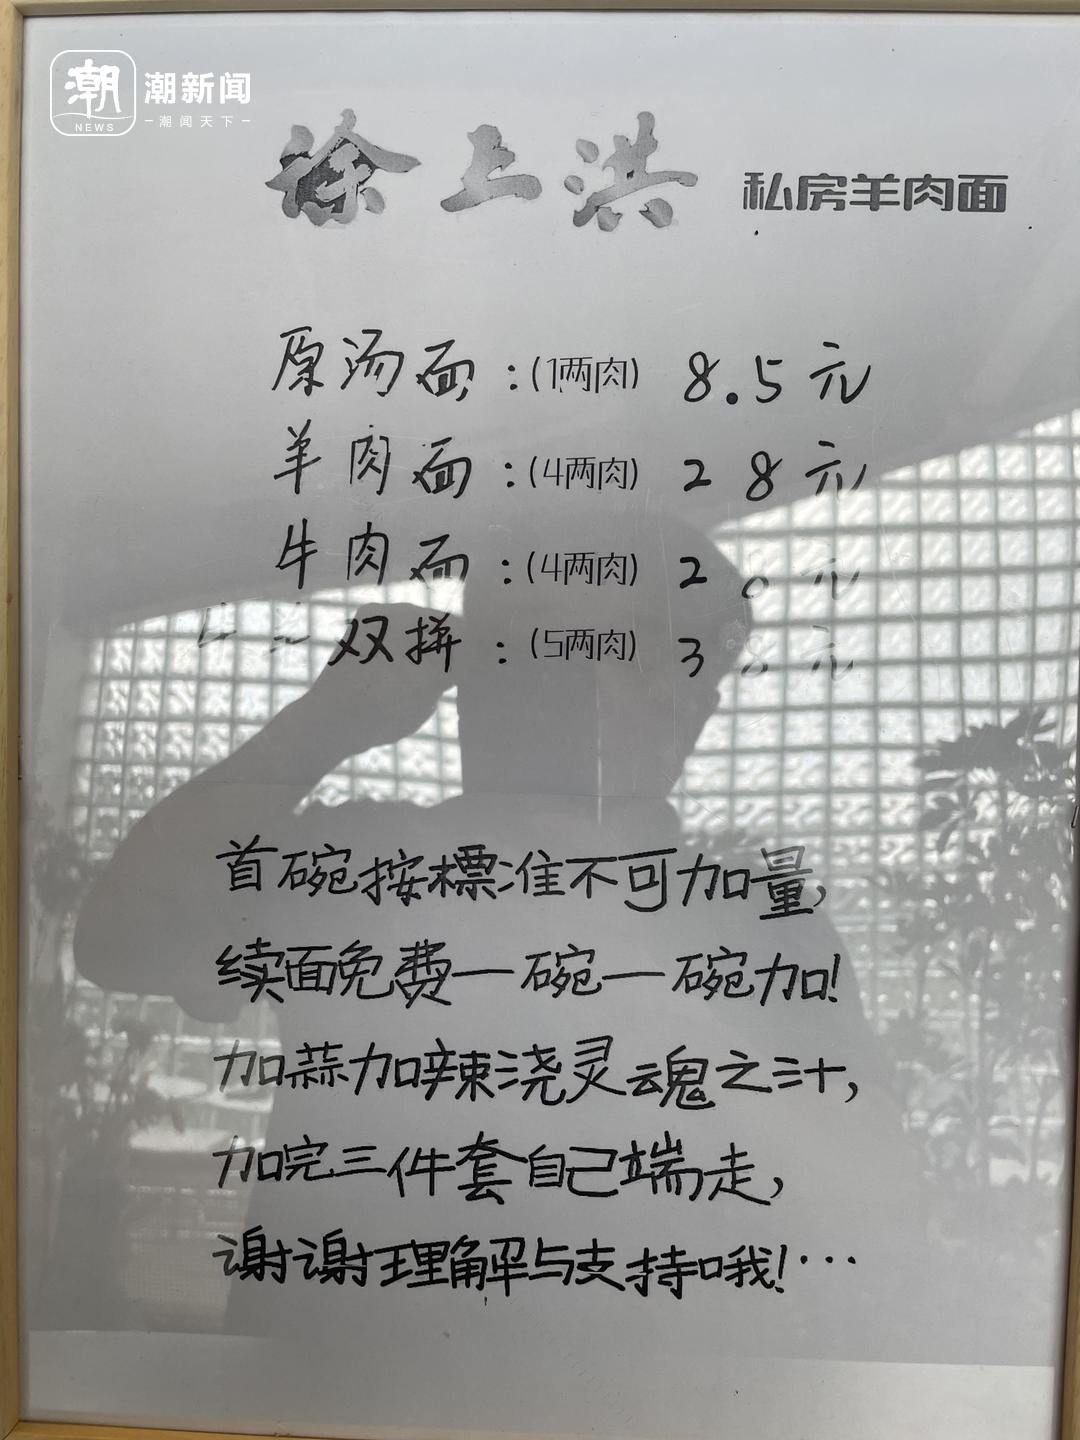 潮新闻
NEWS
潮闻天下
徐上洪 私房羊肉面
原汤面:(1两肉) 8.5元
羊肉面:(4两肉) 28元
牛肉面:(4两肉) 28元
双拼:(5两肉) 38元
首碗按標准不可加量,
续面免费一碗一碗加!
加蒜加辣浇灵魂之汁,
加完三件套自己端走,
谢谢理解与支持哦!···